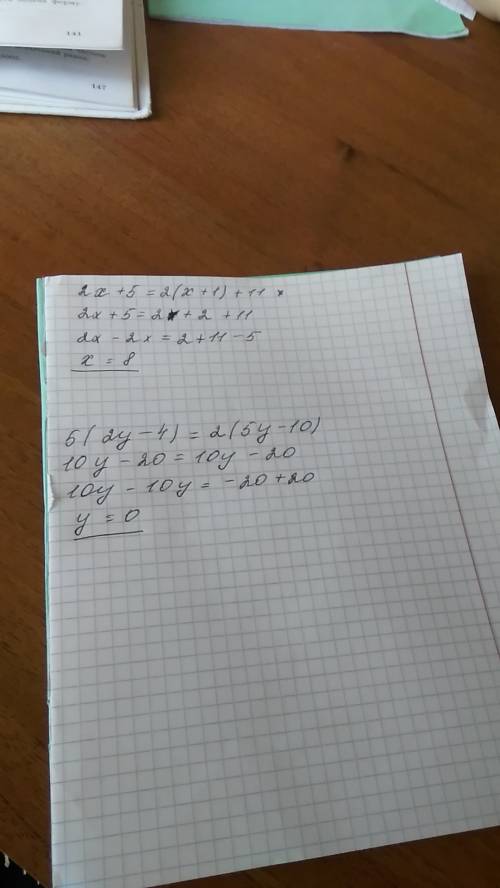 141
147
2x + 5 = 2(x + 1) + 11
2x + 5 = 2x + 2 + 11
2x - 2x = 2 + 11 - 5
x = 8
5(2y - 4) = 2(5y - 10)
10y - 20 = 10y - 20
10y - 10y = -20 + 20
y = 0